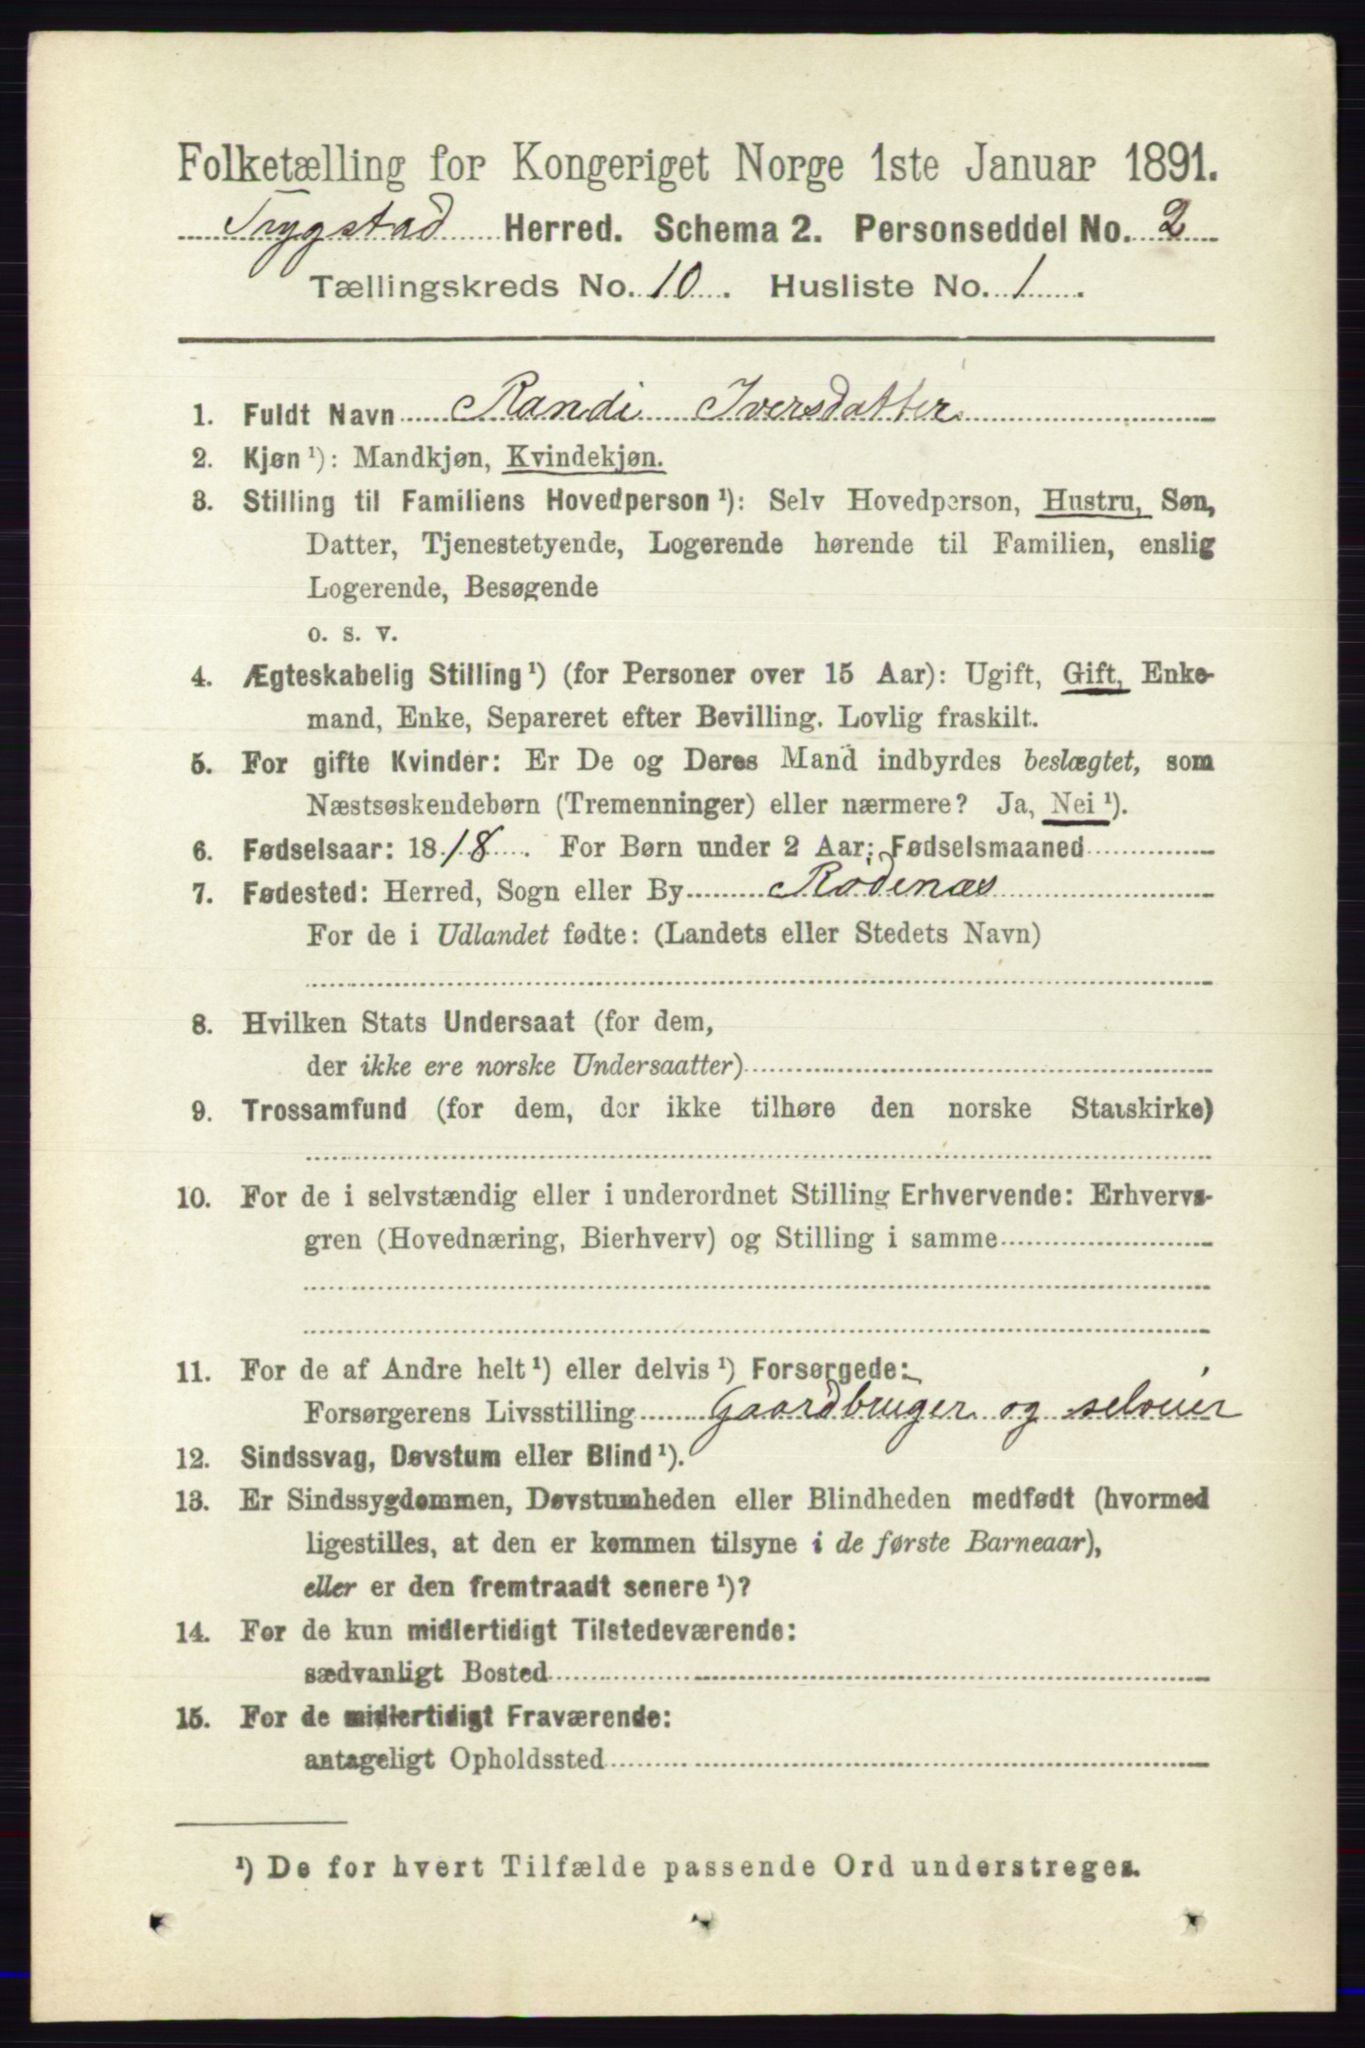 Folketælling for Kongeriget Norge 1ste Januar 1891.
Trygstad Herred. Schema 2. Personseddel No. 2
Tællingskreds No. 10. Husliste No. 1.
1. Fuldt Navn Randi Iversdatter
2. Kjøn ¹): Mandkjøn, Kvindekjøn.
3. Stilling til Familiens Hovedperson ¹): Selv Hovedperson, Hustru, Søn,
Datter, Tjenestetyende, Logerende hørende til Familien, enslig
Logerende, Besøgende
o. s. v.
4. Ægteskabelig Stilling ¹) (for Personer over 15 Aar): Ugift, Gift, Enke-
mand, Enke, Separeret efter Bevilling. Lovlig fraskilt.
5. For gifte Kvinder: Er De og Deres Mand indbyrdes beslægtet, som
Næstsøskendebørn (Tremenninger) eller nærmere? Ja, Nei ¹).
6. Fødselsaar: 1818. For Børn under 2 Aar: Fødselsmaaned
7. Fødested: Herred, Sogn eller By Rødenæs
For de i Udlandet fødte: (Landets eller Stedets Navn)
8. Hvilken Stats Undersaat (for dem,
der ikke ere norske Undersaatter)
9. Trossamfund (for dem, der ikke tilhøre den norske Statskirke)
10. For de i selvstændig eller i underordnet Stilling Erhvervende: Erhvervs-
gren (Hovednæring, Bierhverv) og Stilling i samme
11. For de af Andre helt ¹) eller delvis ¹) Forsørgede:
Forsørgerens Livsstilling Gaardbruger og selveier
12. Sindssvag, Døvstum eller Blind ¹).
13. Er Sindssygdommen, Døvstumheden eller Blindheden medfødt (hvormed
ligestilles, at den er kommen tilsyne i de første Barneaar),
eller er den fremtraadt senere ¹)?
14. For de kun midlertidigt Tilstedeværende:
sædvanligt Bosted
15. For de midlertidigt Fraværende:
antageligt Opholdssted
¹) De for hvert Tilfælde passende Ord understreges.